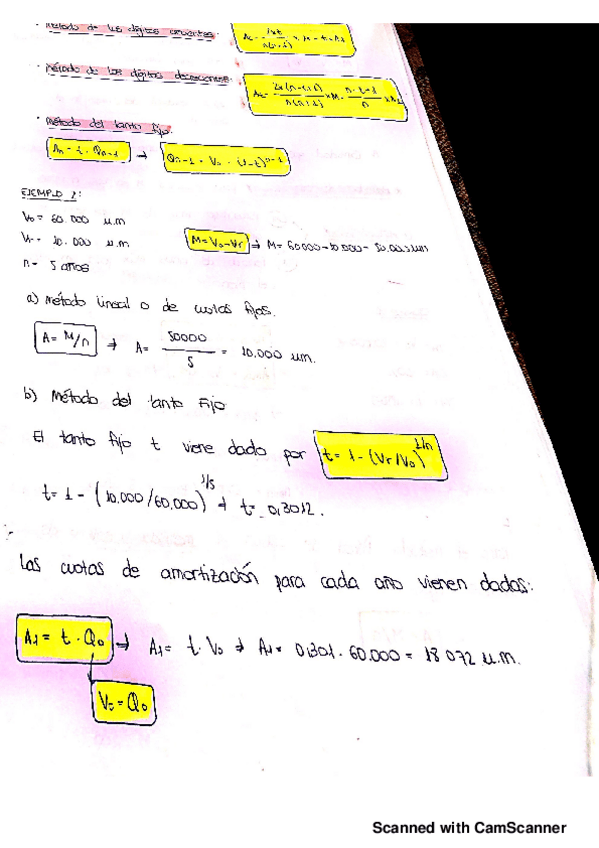 Método de los dígitos crecientes.
Método de los dígitos decrecientes
Método del tanto fijo.
An = t · Qn-1 → Qn-1 = V0 · (1-t)^n-1
EJEMPLO 1:
V0 = 60.000 u.m
Vr = 10.000 u.m M = V0 - Vr ⇒ M = 60000 - 10.000 = 50.000 um
n = 5 años
a) Método lineal o de cuotas fijas.
A = M/n → A = 50000 / 5 = 10.000 um.
b) Método del tanto fijo
El tanto fijo t viene dado por t = 1 - (Vr/V0)^1/n
t = 1 - (10.000/60.000)^1/5 → t = 0,3012.
Las cuotas de amortización para cada año vienen dadas:
A1 = t · Q0 → A1 = t · V0 ⇒ A1 = 0,301 · 60.000 = 18 072 u.m.
V0 = Q0
Scanned with CamScanner